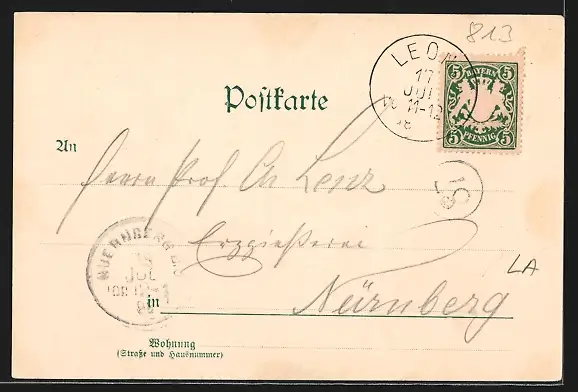 813
LEO
17
JUL
11-12
5 BAYERN 5
5 PFENNIG 5
Postkarte
An
Herrn Prof. Ch. Lenz
Erzgießerei
NUERNBERG
JUL
LA
in Nürnberg
Wohnung
(Straße und Hausnummer)